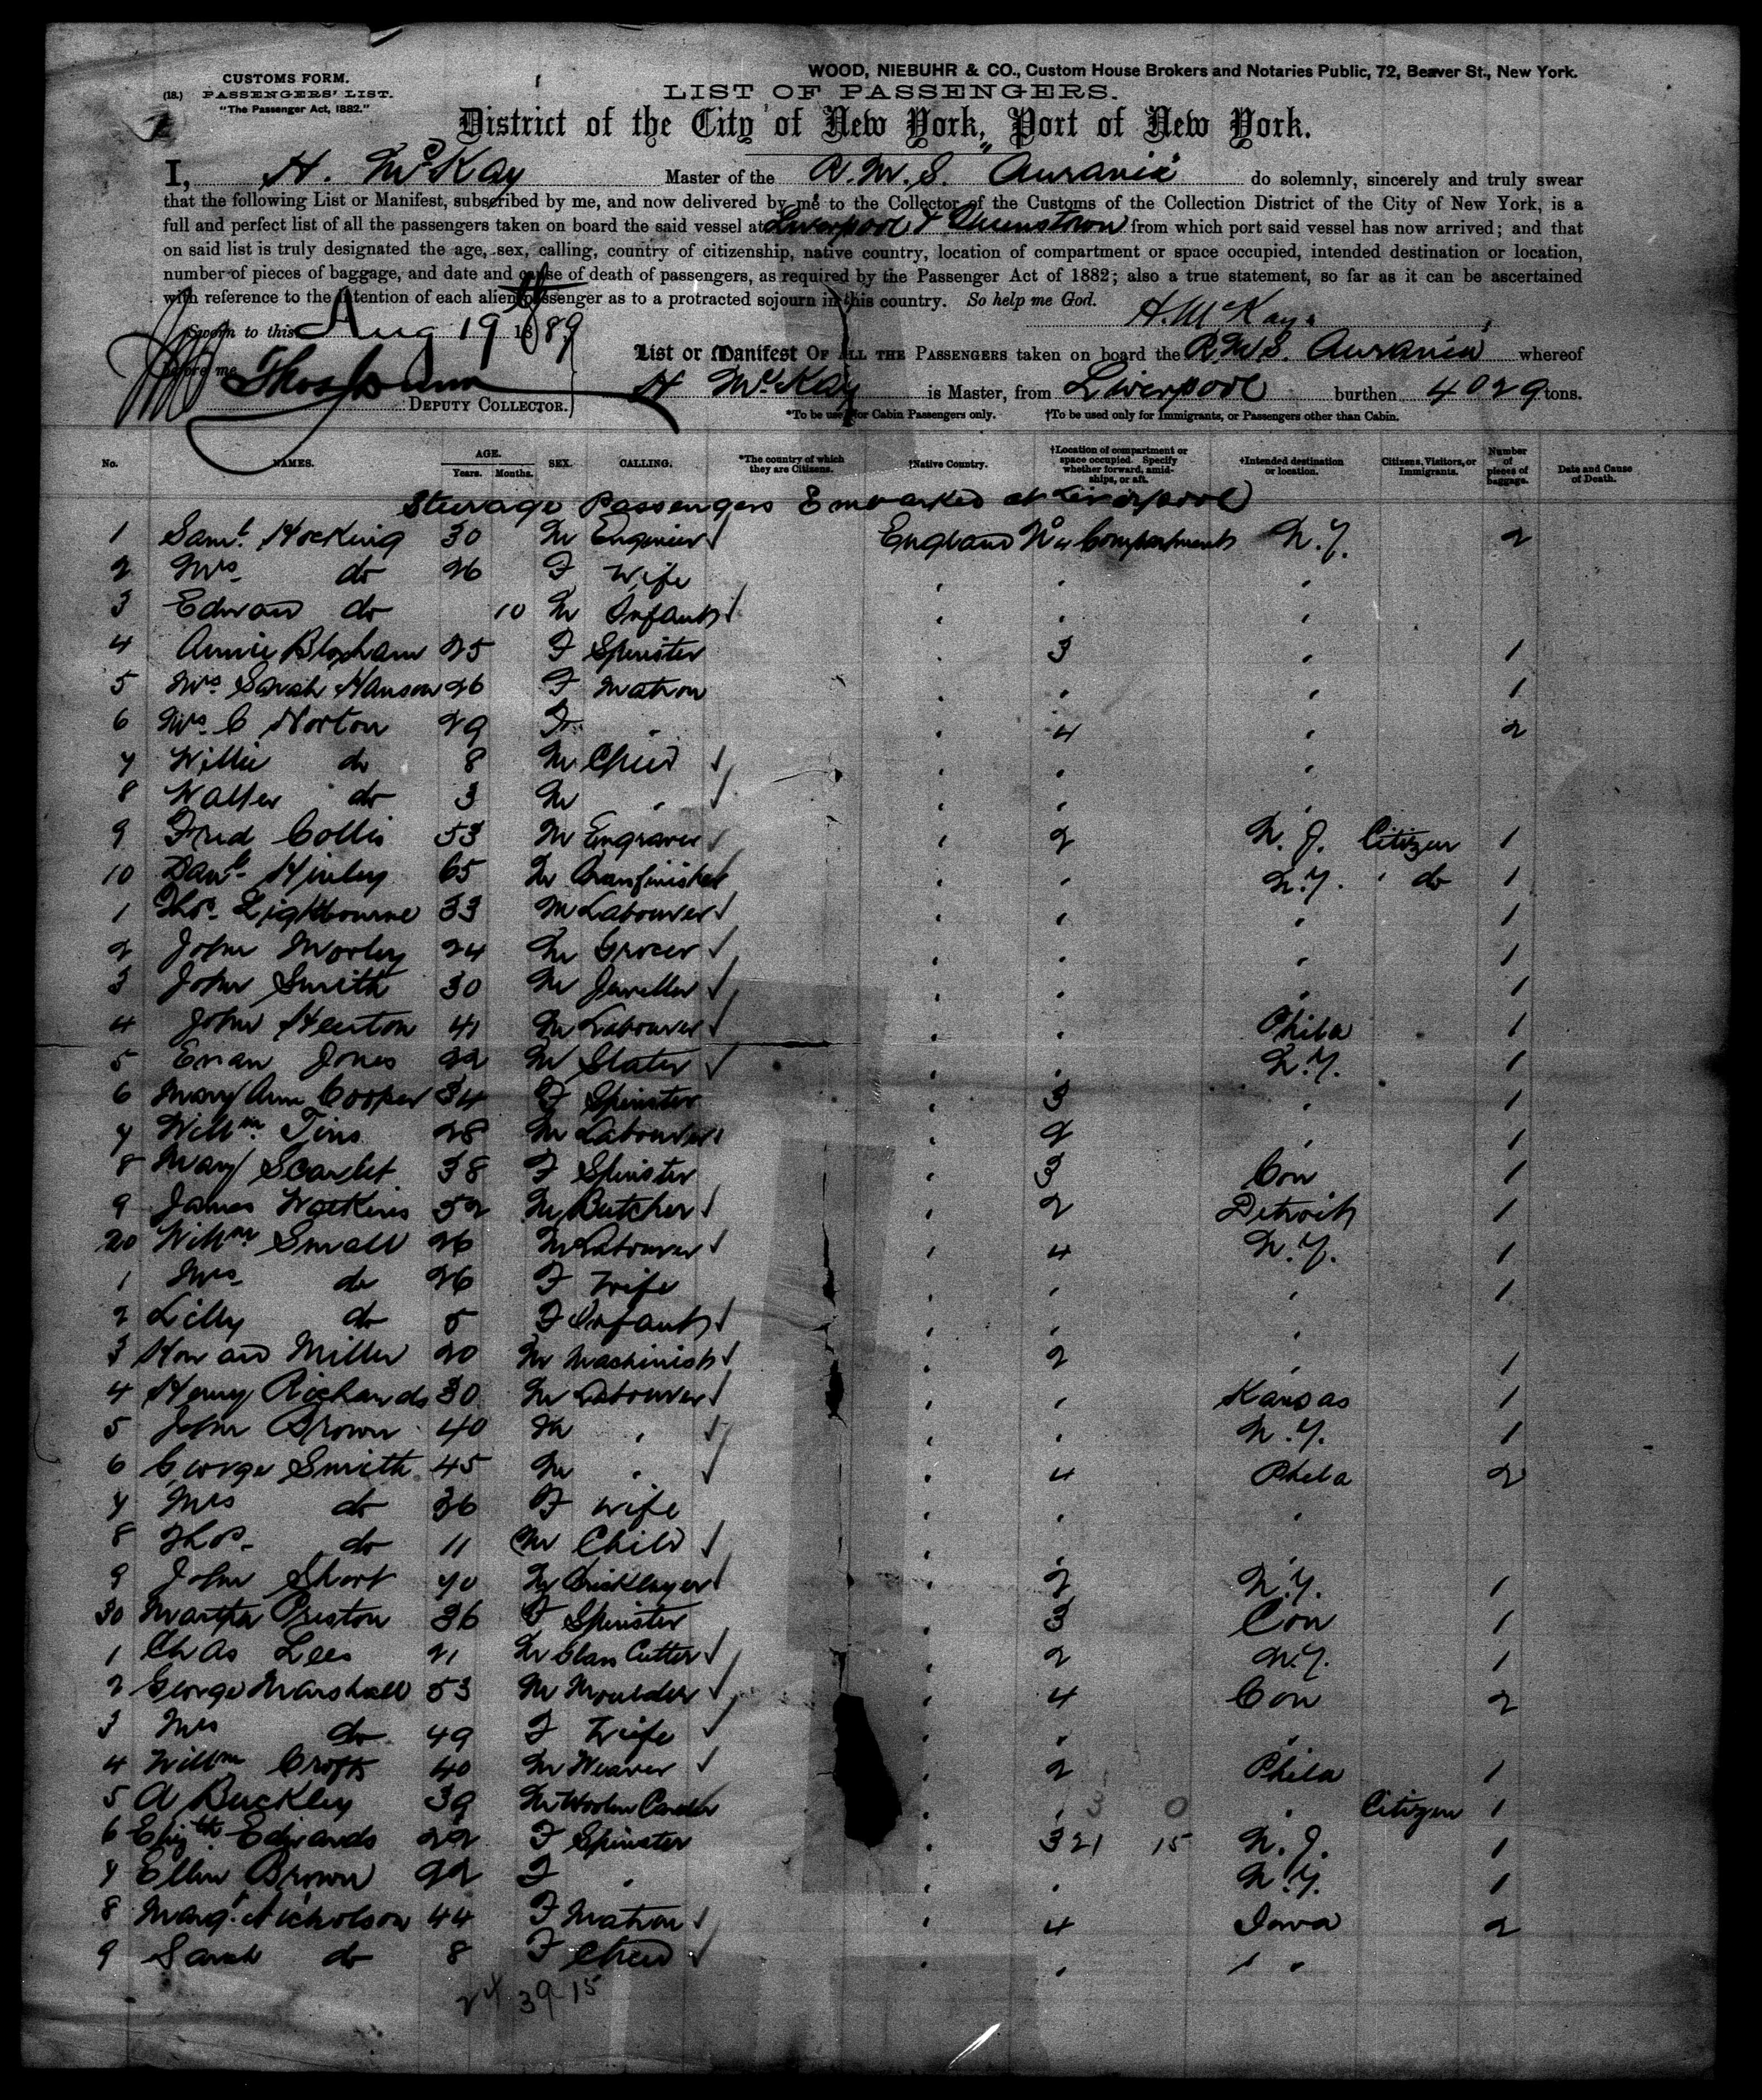 CUSTOMS FORM.
(18.) PASSENGERS' LIST.
"The Passenger Act, 1882."
WOOD, NIEBUHR & CO., Custom House Brokers and Notaries Public, 72, Beaver St., New York.
LIST OF PASSENGERS.
District of the City of New York, Port of New York.
I, H. McKay Master of the R.M.S. "Aurania" do solemnly, sincerely and truly swear
that the following List or Manifest, subscribed by me, and now delivered by me to the Collector of the Customs of the Collection District of the City of New York, is a
full and perfect list of all the passengers taken on board the said vessel at Liverpool & Queenstown from which port said vessel has now arrived; and that
on said list is truly designated the age, sex, calling, country of citizenship, native country, location of compartment or space occupied, intended destination or location,
number of pieces of baggage, and date and cause of death of passengers, as required by the Passenger Act of 1882; also a true statement, so far as it can be ascertained
with reference to the intention of each alien passenger as to a protracted sojourn in this country. So help me God.
H. McKay.
Sworn to this Aug 19th 1889
before me
List or Manifest OF ALL THE PASSENGERS taken on board the R.M.S. Aurania whereof
DEPUTY COLLECTOR.
H McKay is Master, from Liverpool burthen 4029 tons.
*To be used for Cabin Passengers only. †To be used only for Immigrants, or Passengers other than Cabin.
No. NAMES. AGE. Years. Months. SEX. CALLING. *The country of which they are Citizens. †Native Country. †Location of compartment or space occupied. Specify whether forward, amidships, or aft. †Intended destination or location. Citizens, Visitors, or Immigrants. Number of pieces of baggage. Date and Cause of Death.
Steerage Passengers Embarked at Liverpool
1 Saml. Hocking 30 M Engineer England No 4 Compartment N.Y. 2
2 Mrs do 26 F Wife " " "
3 Edward do 10 M Infant " " "
4 Annie Bloxham 25 F Spinster " 3 " 1
5 Mrs Sarah Hanson 26 F Matron " " " 1
6 Mrs C Norton 29 F " " 4 " 2
7 Willie do 8 M Child " " "
8 Walter do 3 M " " " "
9 Fred Collis 53 M Engraver " 2 N.J. Citizen 1
10 Danl. Hinley 65 M Brassfinisher " " N.Y. do 1
1 Thos. Lightbourne 33 M Labourer " " " 1
2 John Morley 24 M Grocer " " " 1
3 John Smith 30 M Jeweller " " " 1
4 John Heerton 41 M Labourer " " Phila 1
5 Evan Jones 22 M Slater " " N.Y. 1
6 Mary Ann Cooper 34 F Spinster " 3 " 1
7 Willm. Tins 28 M Labourer " 2 " 1
8 Mary Scarlet 38 F Spinster " 3 Con 1
9 James Watkins 52 M Butcher " 2 Detroit 1
20 Willm Small 26 M Labourer " 4 N.Y. 1
1 Mrs do 26 F Wife " " " 1
2 Lilly do 5 F Infant " " "
3 Howard Miller 20 M Machinist " 2 " 1
4 Henry Richards 30 M Labourer " " Kansas 1
5 John Brown 40 M " " " N.Y. 1
6 George Smith 45 M " " 4 Phila 2
7 Mrs do 36 F Wife " " "
8 Thos. do 11 M Child " " "
9 John Short 40 M Bricklayer " 2 N.Y. 1
30 Martha Preston 36 F Spinster " 3 Con 1
1 Chas Lees 21 M Glass Cutter " 2 N.Y. 1
2 George Marshall 53 M Moulder " 4 Con 2
3 Mrs do 49 F Wife " " "
4 Willm Crofts 40 M Weaver " 2 Phila 1
5 A Buckley 39 M Woolen Carder " " 3 0 " Citizen 1
6 Elizth Edwards 22 F Spinster " 3 21 15 N.J. 1
7 Ellen Brown 22 F " " " N.Y. 1
8 Margt. Nicholson 44 F Matron " 4 Iowa 2
9 Sarah do 8 F Child " " " "
24 39-15